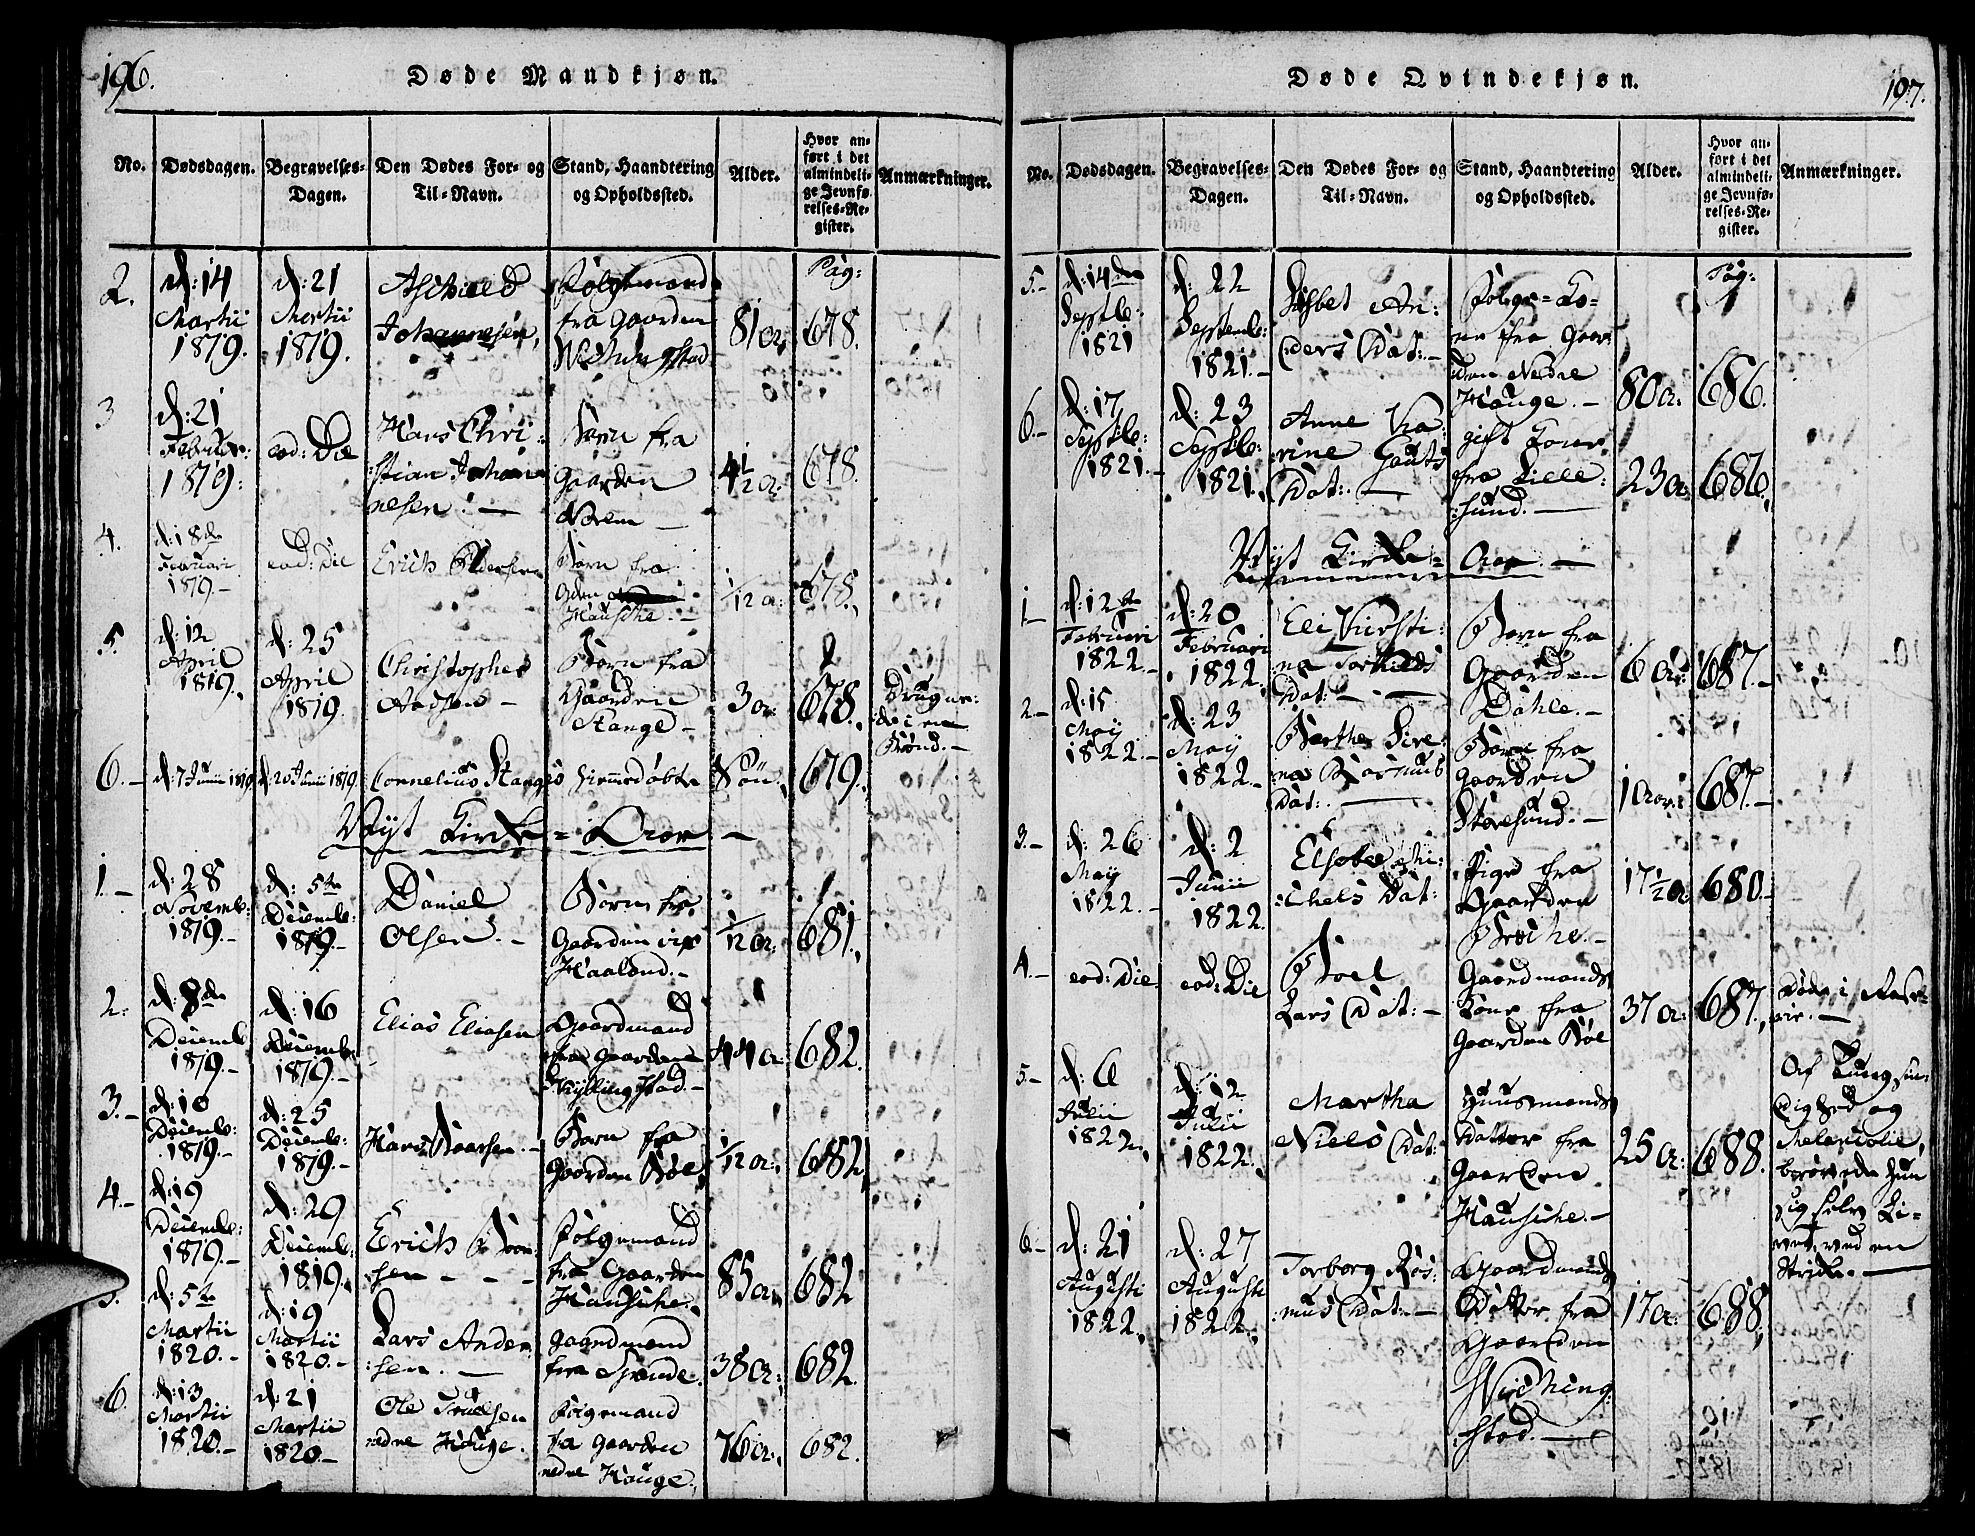 196.
Døde Mandkjøn.
No.
Dødsdagen.
Begravelses-
Dagen.
Den Dødes For- og
Til-Navn.
Stand, Haandtering
og Opholdssted.
Alder.
Hvor an-
ført i det
almindeli-
ge Jevnfø-
relses-Re-
gister.
Anmærkninger.
2.
d: 14
Martii
1819.
d: 21
Martii
1819.
Johannesen,
Følgemand
fra Gaarden
81 ar,
Pag:
678.
3
d: 21
Februar:
1819:
eod: Die
Hans Chri-
:stian Johan
nesen: —
Barn fra
Gaarden
Norem —
4 1/2 a:
678.
4.
d: 18de
Februari
1819. —
eod: Die
Erich
Barn fra
Gden
Hausche. —
1/12 a:
678.
5.
d: 12
April
1819.
d: 25
April
1819
Christopher
Aadsen —
Barn fra
Gaarden
Stange —
3 ar.
678.
Drugne-
de i en
Brønd. —
6. —
d: 7 Junii 1819
d: 20 Junii 1819
Cornelius Stanges
hiemmedøbte
Søn.
679.
Nyt Kirke = Aar —
1. —
d: 28
Novemb:
1819. —
d: 5te
Decemb:
1819. —
Daniel
Olsen. —
Barn fra
Gaarden
Haaland. —
1/12 ar:
681.
2:
d: 8de
Decemb
1819. —
d: 16
Decemb:
1819. —
Elias Eliasen
Gaardmand
fra Gaarden
44 a
682.
3. —
d: 10
Decemb:
1819. —
d: 25
Decemb:
1819. —
Hans Baarsen. —
Barn fra
Gaarden Bøe,
1/12 ar.
682,
4. —
d: 19
Decemb:
1819. —
d: 29
Decemb:
1819.
Erich
:sen — — —
Følgemand
fra Gaarden
Hausche.
85 ar,
682
5.
d: 5te
Martii
1820. —
d: 19
Martii
1820. —
Lars Ander
:sen. —
gaardmand
fra Spande.
38 ar.
682.
6.
d: 13
Martii
1820. —
d: 21
Martii
1820. —
Ole Truelsen
nedre Hauge.
Følgemand
fa Gaarden
nedre Hauge.
76 ar.
682.
197.
Døde Qvindekjøn.
No.
Dødsdagen.
Begravelses-
Dagen.
Den Dødes For- og
Til-Navn.
Stand, Haandtering
og Opholdssted.
Alder.
Hvor an-
ført i det
almindeli-
ge Jevnfø-
relses-Re-
gister.
Anmærkninger.
5. —
d: 14den
Septb:
1821
d: 22
Septemb:
1821. —
Lisbet An:
ders Dat: —
Følge=Ko-
ne fra Gaar
den Nedre
Hauge. —
80 a.
Pag:
686.
6. —
d: 17
Septb:
1821. —
d: 23
Septb:
1821.
Anne Ka-
:rine Gauts
Dat: —
gift Kone
fra Lille:
:sund. —
23 a.
686.
Nyt Kirke = Aar. —
1 —
d: 12te
Februari
1822. —
d: 20
Februari
1822.
Eli Kirsti-
na Torkilds
Dat: — —
Barn fra
Gaarden
Dahle. —
6 ar:
687. —
2. —
d: 15
May
1822. —
d: 23
May
1822. —
Berthe Sire-
na Rasmus
Dat: —
Barn fra
Gaarden
Støresund. —
1 aar.
687. —
3. —
d: 26
May
1822. —
d: 2
Junii
1822.
Elsebe Mi-
:chels Dat:
Pige fra
Gaarden
17 1/2 a
680. —
4. —
eod: Die
eod: Die
Boel
Lars Dat: —
Gaardmands
Kone fra
Gaarden Bøe
37 a:
687.
Døde i
5. —
d: 6
Julii
1822.
d: 12
Julii
1822.
Martha
Niels Dat:
Huusmands
Datter fra
Gaarden
Hausche. —
25 a:
688.
Af Tungsin-
dighed og
Melancolie,
berøvede hun
sig selv Li-
vet, ved en
Strikke. —
6 —
d: 21
Augusti
1822.
d: 27
Augusti
1822.
Torborg Ras:
mus Dat: —
Gaardmands
Datter fra
Gaarden
:stad. —
17 a:
688.